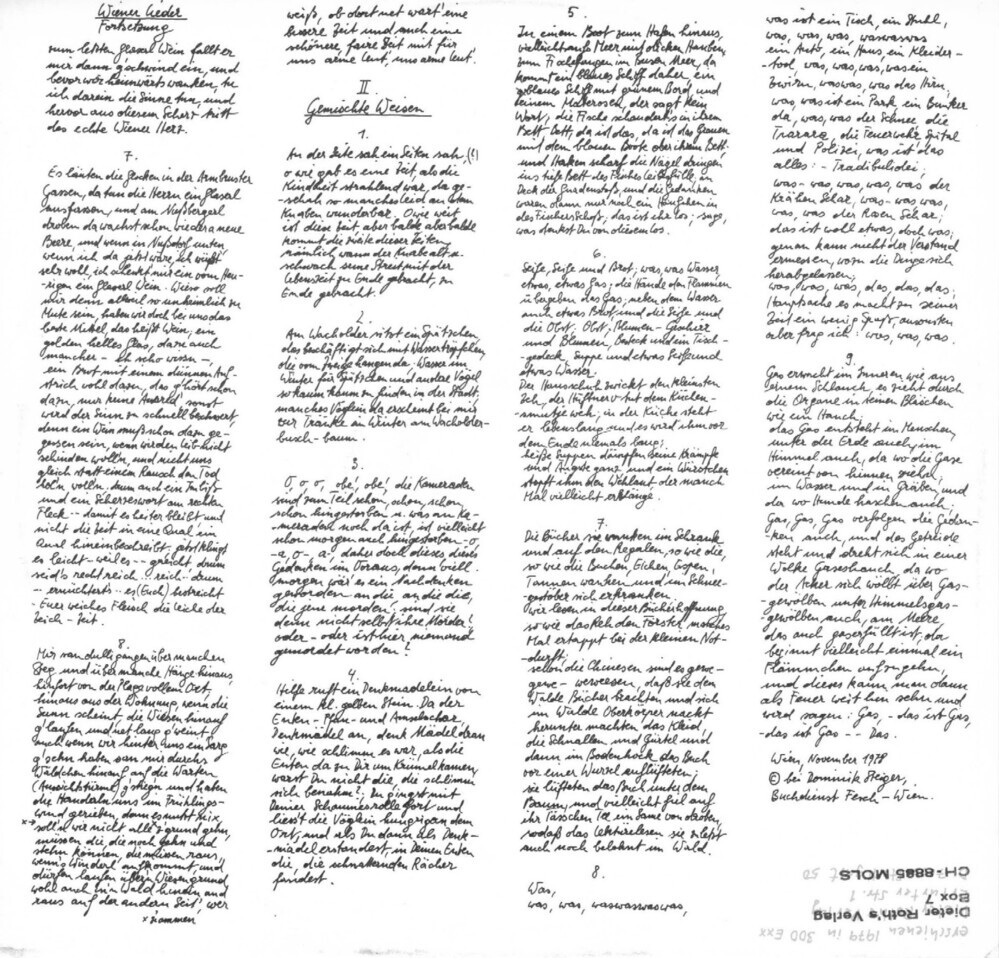 Wiener Lieder
Fortsetzung
zum letzten glaserl Wein fallt er
mir dann g'schwind ein, und
bevor wir heimwärts wanken, tu
ich darein die Sinne tun, und
hervor aus diesem Scherz tritt
das echte Wiener Herz.
7.
Es läuten die Glocken in der Armbruster
Gassen, da tun die Herrn ein glaserl
ausfassen, und am Nußbergerl
droben da wachst schon wieder a neue
Beere und wenn in Nußdorf unten,
wenn ich da jetzt wäre, ich wüßt
sehr woll, ich schenkt mir ein vom Heu-
rigen ein glaserl Wein. Wieso soll
mir denn allweil so unheimlich zu
Mute sein, haben wir doch bei uns das
beste Mittel, das heißt Wein; ein
golden helles Glas, dazu auch
mancher - Ich scho wissn -,
ein Brot mit einem dünnen Auf-
strich wohl dazu, das g'hört schon
dazu, nur keine Hudelei, sonst
wird der Sinn zu schnell beschwert,
denn ein Wein muß schon dazu ge-
gessen sein, wenn wir den Leib nicht
schinden wolln, und nicht uns
gleich statt einem Rausch den Tod
hol'n wolln. Dann auch ein Imbiß
und ein Scherzeswort am rechten
Fleck -- damit es heiter bleibt und
nicht die Zeit in eine Qual, ein
Qual hineinbeschreibt- jetzt klingt
es leicht- weil es -- greicht, drum
seid's recht reich.. reich- drum
-- ernüchterts -- es (Euch) bestreicht
- Euer weiches Fleisch die Leiche der
Leich - Zeit.
8.
Mir san dulligangen über manchen
Weg und über manche Hänge hinaus,
hinfort von der Plage vollem Ort,
hinaus aus der Wohnung, wenn die
Sunn scheint, die Wiesen hinauf
g'laufen und net lang g'weint,
auch wenn wir hinter uns ein Sarg
g'sehn haben san mir durchs
Wäldchen hinauf auf die Warten
(Aussichtstürml) g'stiegn und haben
die Handaln uns im Frühlings-
wind gerieben, denn es nutzt nix,
x→ soll'n wir nicht alle z'grund gehn,
müssen die, die noch gehn und
stehn können, die müssen raus,
wenn's Winderl aufkommt, und
dürfen laufen übern Wiesengrund
wohl auch in'n Wald hinein und
raus auf der andern Seit', wer
x z'sammen
weiß, ob dort net wart' eine
bessre Zeit und auch eine
schönere, faire Zeit mit für
uns arme Leut', uns arme Leut'.
II
Gemischte Weisen
1.
An der Seite sah ein Seiten sah, (!)
o wie gab es eine Zeit, als die
Kindheit strahlend war, da ge-
schah so manches leid an dem
Knaben wunderbar. O wie weit
ist diese Zeit, aber balde aber balde
kommt die zweite dieser Zeiten,
nämlich wann der Knabe alt u.
schwach seine Streit mit der
Lebenszeit zu Ende gebracht, zu
Ende gebracht.
2.
Am Wacholder sitzt ein Spätzchen,
das beschäftigt sich mit Wassertröpfchen,
die vom Zweige hangen da. Wasser im
Winter für Spätzchen und andre Vögel
so kaum kaum zu finden in der Stadt;
manches Vöglein da erscheint bei mir
zur Tränke im Winter am Wacholder-
busch - baum.
3.
O, o, o, obe', obe', die Kameraden
sind zum Teil schon, schon, schon
schon hingestorben u. was an Ka-
meraden noch da ist, ist vielleicht
schon morgen auch hingestorben - o,
- a, o - a, daher doch dieses dieses
Gedanken im Voraus, denn viell.
morgen wär' es ein Nachdenken
geworden an die an die die,
die jene morden. Und sie
deren nicht selbst ihre Mörder!
oder - oder ist hier niemand
gemordet worden?
4.
Hilfe ruft ein Denkmädelein von
einem kl. gelben Stein. Da der
Enten - Pfau - und Amselschar,
Denkmädel an, denk Mädel dran
wie, wie schlimm es war, als die
Enten da zu Dir um Krümel kamen,
warst Du nicht die, die schlimm
sich benahm?; Du gingst mit
Deiner Schaumesrolle fort und
ließ't die Vöglein hungrig an dem
Ort, und als Du dann als Denk-
mädel erstandest, in Deinen Enten
die, die schnatternden Rächer
fandest.
5.
In einem Boot zum Hafen hinaus,
vielleicht aufs Meer mit dicken Hauben,
zum Fischefangen im bösen Meer, da
kommt ein blaues Schiff daher, ein
goblaues Schiff mit grünem Bord, und
keinem Matrosen, der sagt kein
Wort, die Fische schaudert's in ihrem
Bett Bett, da ist das, da ist das Grauen
mit dem blauen Boote ober ihrem Bett
und Haken scharf die Nägel dringen
ins tiefe Bett des Fisches Leibesfülle, im
Deck der Gurdenstoß, und die Gedanken
waren dann nur noch ein Hinsehen in
des Fischers Schoß, das ist ihr los; sage,
was denkst Du von diesem los.
6.
Seife, Seife und Brot, was, was Wasser
etwas, etwas Gas; die Hände den Flammen
übergeben das Gas; neben dem Wasser
auch etwas Brot und die Seife und
die Obst, Obst; Blumen - Geschirr
und Blumen, Besteck und ein Tisch -
- gedeck, Suppe und etwas Seife und
etwas Wasser.
Der Hausschuh zwickt den kleinsten
Zeh, der Hüftner tut dem Küchen-
- mutje weh; in der Küche steht
er lebenslang und es wird ihm vor
dem Ende niemals lang;
heiße Suppen dämpfen Beine Krämpfe
und Ängste ganz und ein Würstchen
stopft ihm den Wehlaut der manch
Mal vielleicht erklänge.
7.
Die Bücher sie wanken im Schranke
und auf den Regalen, so wie die,
so wie die Buchen, Eichen, Espen,
Tannen wanken und im Schnee-
-gestöber sich erkranken.
wir lesen in dieser Bücherhoffnung,
so wie das Reh den Förster manches
Mal ertappt bei der kleinen Not-
-durft;
schon die Chinesen sind es gewe-
gewe- verwesen, daß sie den
Walde Bücher brachten und sich
im Walde Oberkörper nackt
herunter machten das Kleid,
die Schnallen und Gürtel und
dann im Bodenhock das Buch
vor einer Wurzel auflüfteten;
sie lüfteten das Buch unter dem
Baum, und vielleicht fiel auf
ihr Tässchen Tee ein Same von da oben,
sodaß das Lektürelesen sie zuletzt
auch noch belohnt im Wald.
8.
Was,
was, was, waswaswaswas,
was ist ein Tisch, ein Stuhl,
was, was, was, waswaswas
ein Auto, ein Haus, ein Kleider-
-tod was, was, was, was ein
Zwirn, waswas, was das Hirn,
was, was ist ein Park, ein Bunker
da, was, was der Schnee die
Trarara, die Feuerwehr Spital
und Polizei, was ist das
alles: - Tradibulidei;
was - was, was, was, was der
Krähen Schar, was - was was,
was, was der Rosen Schar;
das ist woll etwas, doch was;
genau kann nicht der Verstand
ermessen, wozu die Dinge sich
herabgelassen;
was, was, was, das, das, das;
Hauptsache es macht zu seiner
Zeit ein wenig Spaß, ansonsten
aber frag ich: was, was, was.
9.
Gas erwacht im Inneren wie aus
einem Schlauch, es zieht durch
die Organe in feinen Bläschen
wie ein Hauch;
das Gas entsteht im Menschen,
unter der Erde auch, im
Himmel auch, da wo die Gase
vereint von hinnen ziehn,
im Wasser und in Gräben, und
da wo Hunde haschen auch;
Gas, Gas, Gas verfolgen die Gedan-
-ken auch, und das Getreide
steht und dreht sich in einer
Wolke Gaseshauch, da wo
der Acker sich wölbt über Gas-
-gewölben unter Himmelsgas-
-gewölben auch, am Meere,
das auch gaserfüllt ist, da
beginnt vielleicht einmal ein
Flämmchen aufzugehn,
und dieses kann man dann
als Feuer weithin sehn und
wird sagen: Gas, - das ist Gas,
- das ist Gas -- Das.
Wien, November 1978
© bei Dominik Steiger,
Buchdienst Fesch - Wien.
erschienen 1979 in 300 Exx
Dieter Roth's Verlag
Box 7
CH-8885 MOLS